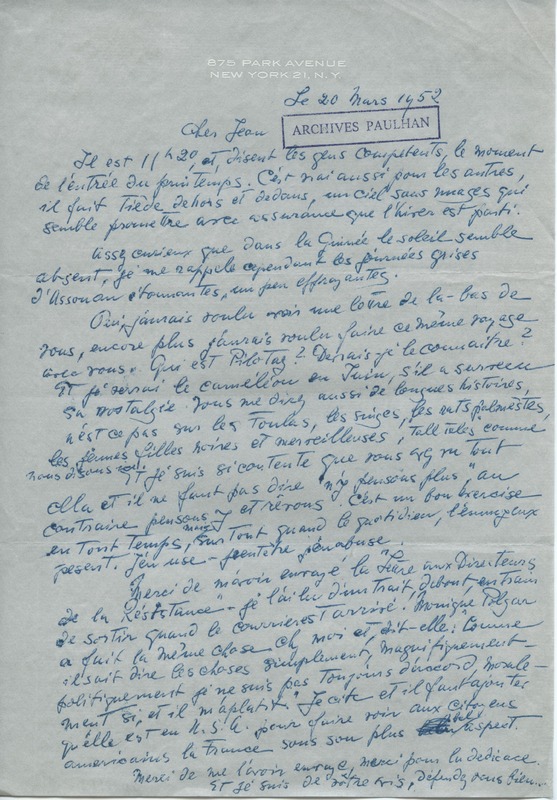 875 PARK AVENUE
NEW YORK 21, N.Y.
Le 20 Mars 1952
ARCHIVES PAULHAN
Cher Jean
Il est 11h20, et, disent les gens compétents, le moment
de l'entrée du printemps. C'est vrai aussi pour les autres,
il fait tiède dehors et dedans, un ciel sans nuages qui
semble promettre avec assurance que l'hiver est parti.
Assez curieux que dans la Guinée le soleil semble
absent, je me rappelle cependant les journées grises
d'Assouan étonnantes, un peu effrayantes.
Oui, j'aurais voulu avoir une lettre de là-bas de
vous, encore plus j'aurais voulu faire ce même voyage
avec vous. Qui est ? Devrais-je le connaître ?
Et je verrai le caméléon en Juin, s'il a survécu
sa nostalgie. Vous me direz aussi de longues histoires,
n'est ce pas sur les Foulas, les singes, les rats palmistes,
les femmes filles noires et merveilleuses, "tall tales" comme
nous disons ici. Et je suis si contente que vous ayez vu tout
cela et il ne faut pas dire "n'y pensons plus", au
contraire pensons y et rêvons c'est un bon exercice
en tout temps, mais surtout quand le quotidien, l'ennuyeux
pèsent. J'en use - peut-être j'en abuse.
Merci de m'avoir envoyé la "Lettre aux Directeurs
de la Résistance" - je l'ai lu d'un trait, debout, en train
de sortir quand le courrier est arrivé. Monique
a fait la même chose ch. moi et, dit-elle : Comme
il sait dire les choses simplement, magnifiquement
politiquement je ne suis pas toujours d'accord, morale-
ment si, et il m'aplatit." Je cite et il faut ajouter
qu'elle est en U.S.A. pour faire voir aux citoyens
américains la France sous son plus bel aspect.
Merci de me l'avoir envoyé, merci pour la dédicace.
Et je suis de votre avis, défendez vous bien...